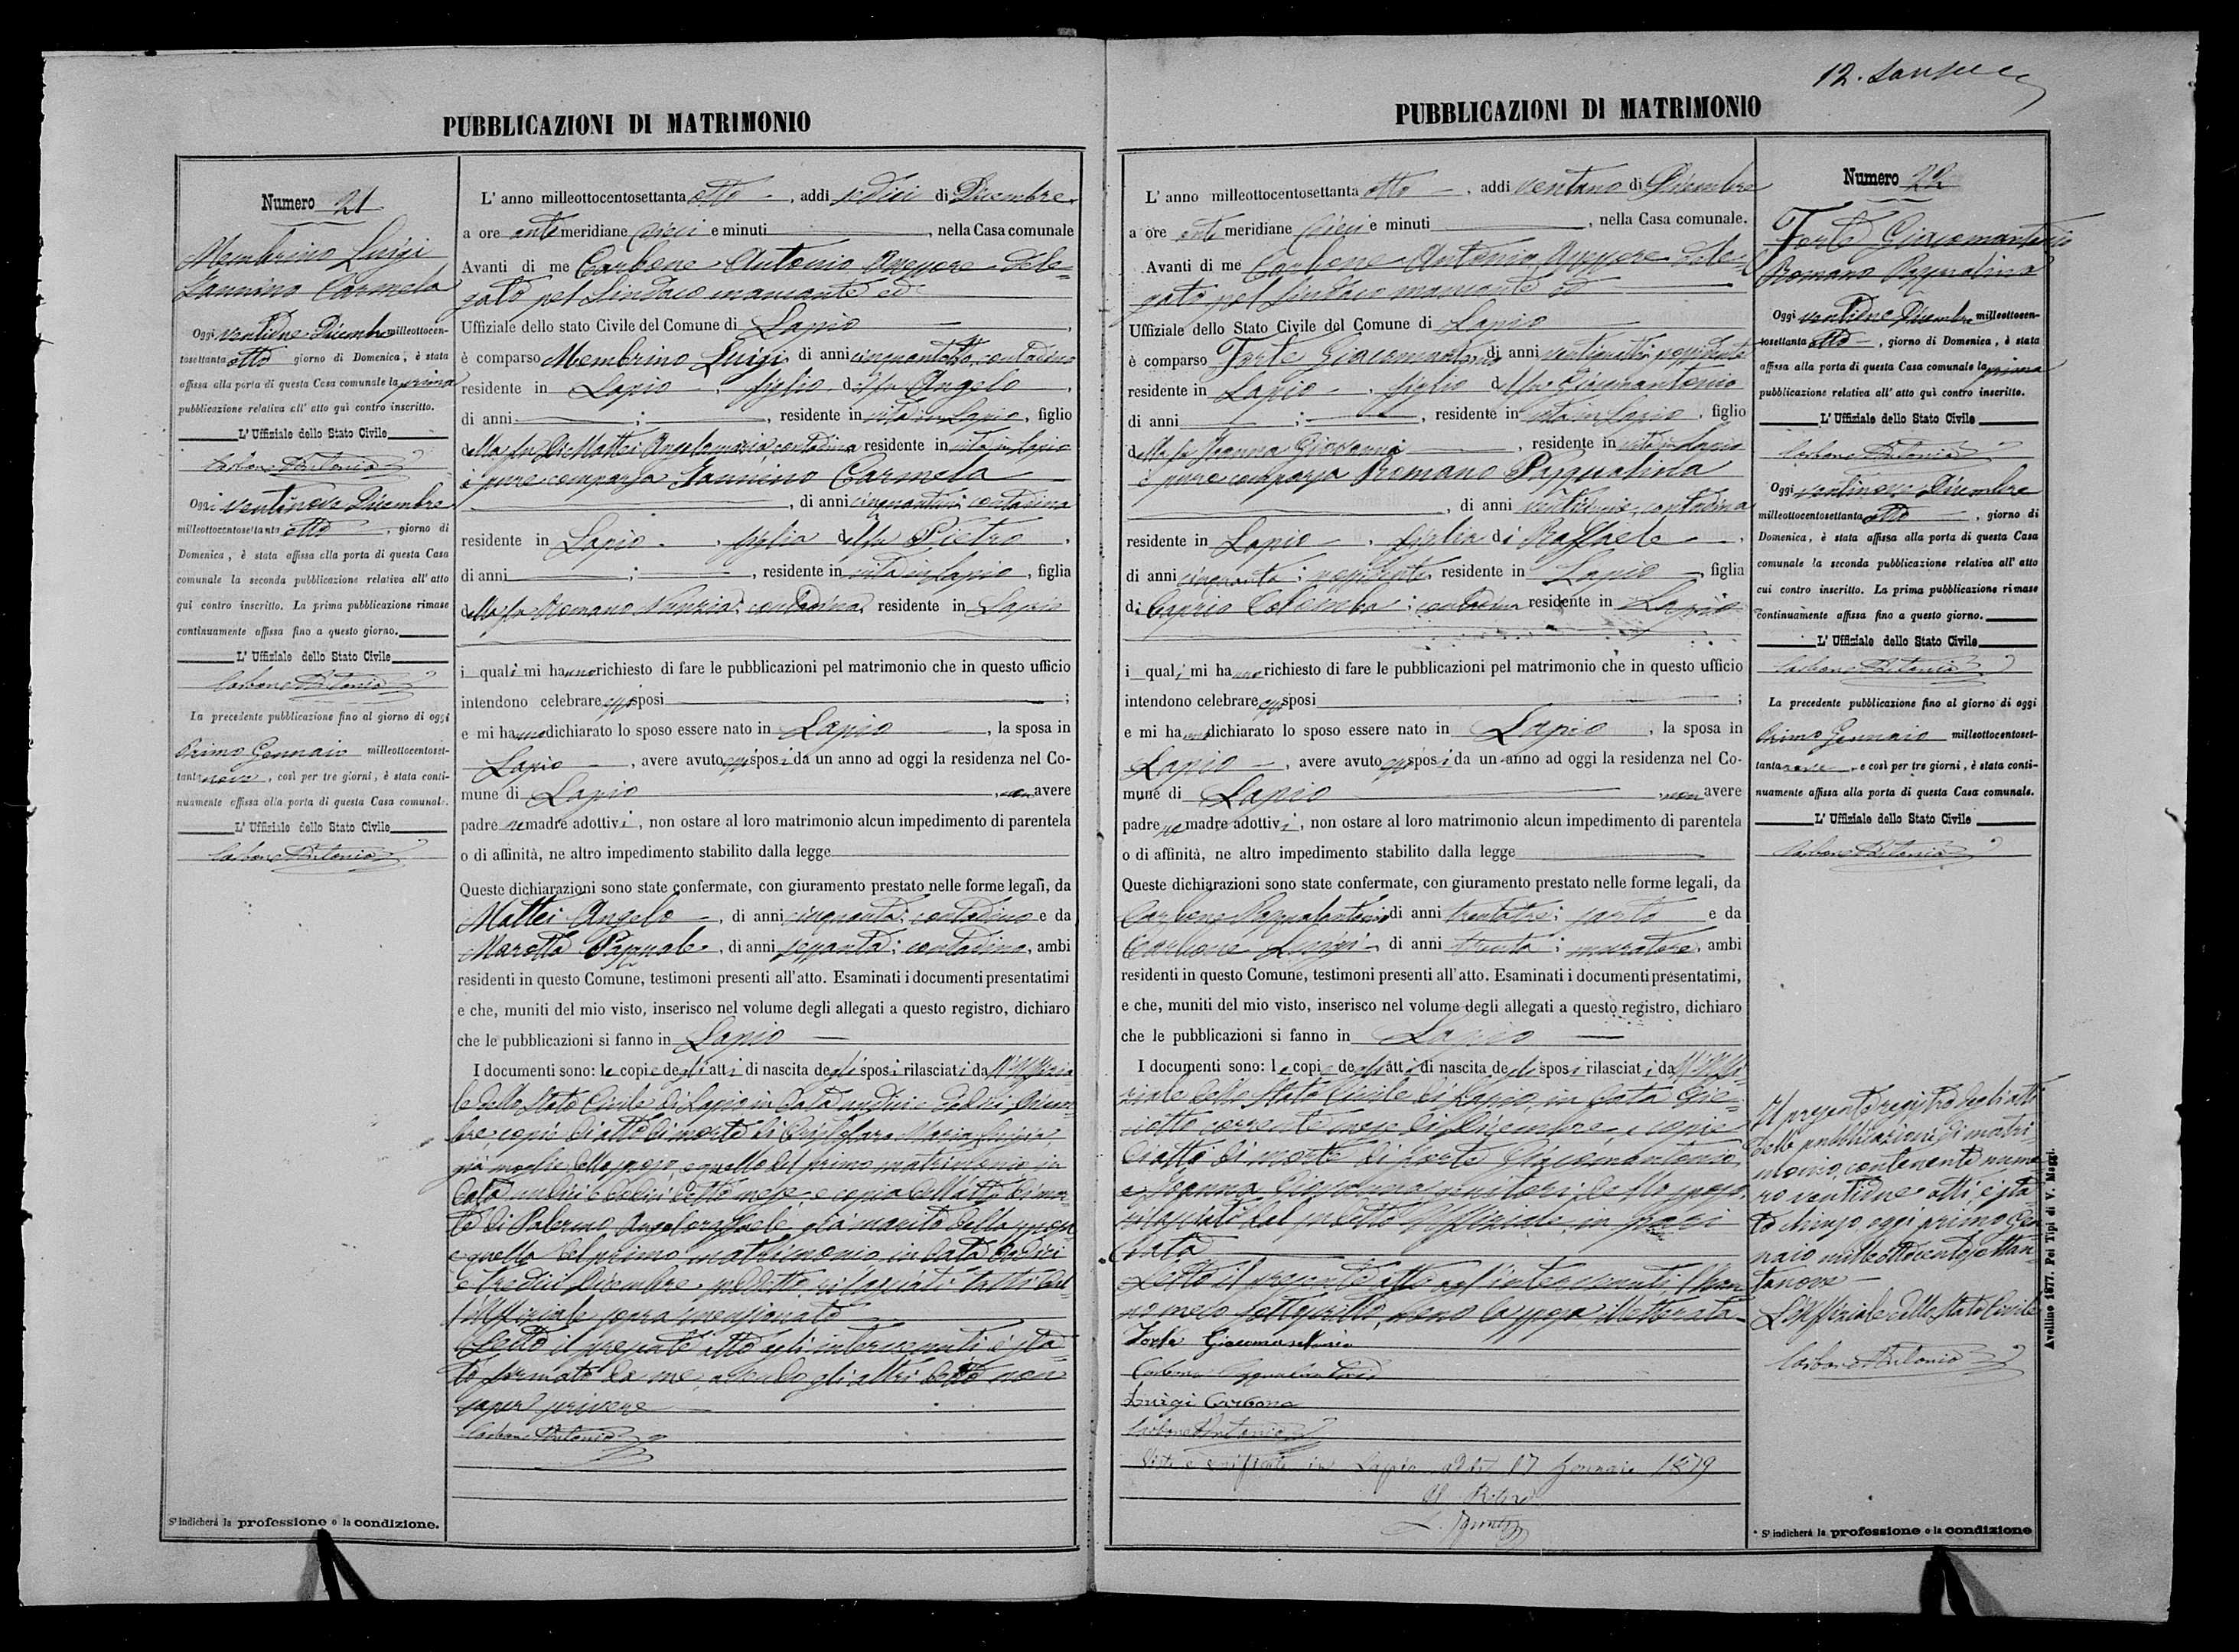 PUBBLICAZIONI DI MATRIMONIO
Numero 21
Membrino Luigi
Iannino Carmela
Oggi ventidue Dicembre milleottocen-
tosettanta otto giorno di Domenica, è stata
affissa alla porta di questa Casa comunale la prima
pubblicazione relativa all' atto quì contro inscritto.
L' Uffiziale dello Stato Civile
Carbone Antonio
Oggi ventinove Dicembre
milleottocentosettanta otto, giorno di
Domenica, è stata affissa alla porta di questa Casa
comunale la seconda pubblicazione relativa all' atto
quì contro inscritto. La prima pubblicazione rimase
continuamente affissa fino a questo giorno.
L' Uffiziale dello Stato Civile
Carbone Antonio
La precedente pubblicazione fino al giorno di oggi
Primo Gennaio milleottocentoset-
tanta nove, così per tre giorni, è stata conti-
nuamente affissa alla porta di questa Casa comunale.
L' Uffiziale dello Stato Civile
Carbone Antonio
S' indicherà la professione o la condizione.
L' anno milleottocentosettanta otto, addì sedici di Dicembre
a ore anti meridiane dieci e minuti , nella Casa comunale
Avanti di me Carbone Antonio Assessore dele-
gato pel Sindaco mancante ed
Uffiziale dello stato Civile del Comune di Lapio
è comparso Membrino Luigi, di anni cinquantotto, contadino
residente in Lapio, figlio del fu Angelo,
di anni ; , residente in vita in Lapio, figlio
della fu Di Mattei Angelamaria, contadina residente in vita in Lapio
è pure comparsa Iannino Carmela
, di anni contadina
residente in Lapio, figlia del fu Pietro,
di anni ; , residente in vita in Lapio, figlia
della fu Romano Nunzia; contadina, residente in Lapio
i quali mi hanno richiesto di fare le pubblicazioni pel matrimonio che in questo ufficio
intendono celebrare essi sposi ;
e mi hanno dichiarato lo sposo essere nato in Lapio, la sposa in
Lapio, avere avuto essi sposi da un anno ad oggi la residenza nel Co-
mune di Lapio, non avere
padre ne madre adottivi, non ostare al loro matrimonio alcun impedimento di parentela
o di affinità, ne altro impedimento stabilito dalla legge
Queste dichiarazioni sono state confermate, con giuramento prestato nelle forme legali, da
Mattei Angelo, di anni cinquanta; contadino e da
Marotta Pasquale, di anni sessanta; contadino, ambi
residenti in questo Comune, testimoni presenti all' atto. Esaminati i documenti presentatimi
e che, muniti del mio visto, inserisco nel volume degli allegati a questo registro, dichiaro
che le pubblicazioni si fanno in Lapio
I documenti sono: le copie degli atti di nascita degli sposi rilasciati da ll'Uffizia-
le dello Stato Civile di Lapio in data undici e dodici Dicem-
bre copie di atto di morte di Maria Luigia
già moglie dello sposo, e quello del primo matrimonio in
data undici e dodici detto mese, e copia dell'atto di mor-
te di Palermo Angeloraffaele già marito della sposa
e quella del primo matrimonio in data dodici
e tredici Dicembre suddetto rilasciati tutti dal-
l'Uffiziale sopra menzionato
Letto il presente atto agli intervenuti è sta-
to firmato da me, avendo gli altri detto non
saper scrivere
Carbone Antonio
12.
PUBBLICAZIONI DI MATRIMONIO
L' anno milleottocentosettanta otto, addì ventuno di Dicembre
a ore anti meridiane dieci e minuti , nella Casa comunale.
Avanti di me Carbone Antonio Assessore dele-
gato pel Sindaco mancante ed
Uffiziale dello Stato Civile del Comune di Lapio
è comparso Forte Giacomantonio di anni possidente
residente in Lapio, figlio del fu Giacomantonio
di anni ; , residente in vita in Lapio, figlio
della fu Ioanna Giovanna, residente in vita in Lapio
è pure comparsa Romano Pasqualina
, di anni contadina
residente in Lapio, figlia di Raffaele,
di anni cinquanta; possidente, residente in Lapio, figlia
di Caprio Colomba; contadina residente in Lapio
i quali mi hanno richiesto di fare le pubblicazioni pel matrimonio che in questo ufficio
intendono celebrare essi sposi ;
e mi hanno dichiarato lo sposo essere nato in Lapio, la sposa in
Lapio, avere avuto essi sposi da un anno ad oggi la residenza nel Co-
mune di Lapio, non avere
padre ne madre adottivi, non ostare al loro matrimonio alcun impedimento di parentela
o di affinità, ne altro impedimento stabilito dalla legge
Queste dichiarazioni sono state confermate, con giuramento prestato nelle forme legali, da
Carbone Pasqualantonio di anni trentatre; sarto e da
Carbone Luigi, di anni trenta; muratore, ambi
residenti in questo Comune, testimoni presenti all' atto. Esaminati i documenti presentatimi,
e che, muniti del mio visto, inserisco nel volume degli allegati a questo registro, dichiaro
che le pubblicazioni si fanno in Lapio
I documenti sono: le copie degli atti di nascita degli sposi rilasciati da ll'Uffi-
ziale dello Stato Civile di Lapio, in data die-
ciotto corrente mese di Dicembre, e copie
di atti di morte di Forte Giacomantonio
e Ioanna Giovanna genitori dello sposo,
rilasciati dal suddetto Uffiziale in pari
data
Letto il presente atto agl'intervenuti, l'han-
no meco sottoscritto, meno la sposa illetterata
Forte Giacomantonio
Carbone Pasqualantonio
Luigi Carbone
Carbone Antonio
Visto e verificato in Lapio addì 17 Gennaio 1879
Numero 22
Forte Giacomantonio
Romano Pasqualina
Oggi ventidue Dicembre milleottocen-
tosettanta otto, giorno di Domenica, è stata
affissa alla porta di questa Casa comunale la prima
pubblicazione relativa all' atto quì contro inscritto.
L' Uffiziale dello Stato Civile
Carbone Antonio
Oggi ventinove Dicembre
milleottocentosettanta otto, giorno di
Domenica, è stata affissa alla porta di questa Casa
comunale la seconda pubblicazione relativa all' atto
cui contro inscritto. La prima pubblicazione rimase
continuamente affissa fino a questo giorno.
L' Uffiziale dello Stato Civile
Carbone Antonio
La precedente pubblicazione fino al giorno di oggi
Primo Gennaio milleottocentoset-
tanta nove, e così per tre giorni, è stata conti-
nuamente affissa alla porta di questa Casa comunale.
L' Uffiziale dello Stato Civile
Carbone Antonio
Il presente registro degli atti
delle pubblicazioni di matri-
monio, contenente nume-
ro ventidue atti, è sta-
to chiuso oggi primo Gen-
naio milleottocentosettan-
tanove
L'Uffiziale dello Stato Civile
Carbone Antonio
* S' indicherà la professione o la condizione
Avellino 1877. Pei Tipi di V. Maggi.